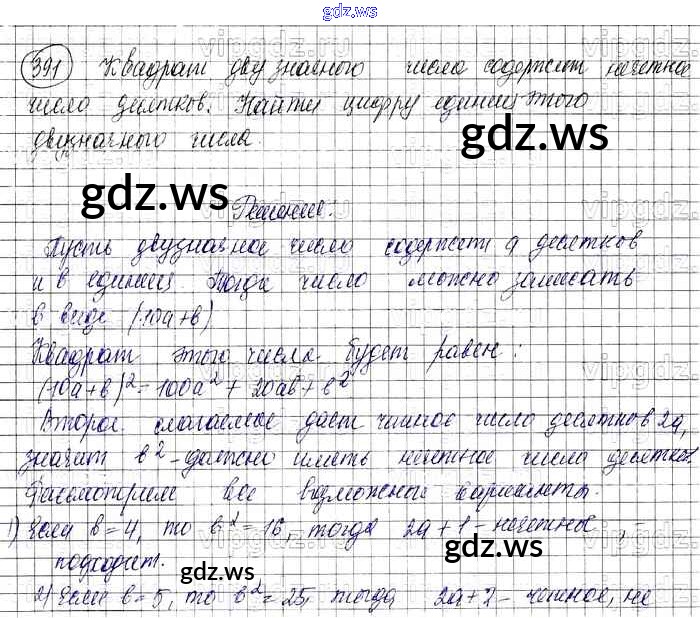 gdz.ws
391 Квадрат двузначного числа содержит нечетное
число десятков. Найти цифру единиц этого
двузначного числа.
Решение.
Пусть двузначное число содержит а десятков
и в единиц. Тогда число можно записать
в виде (10а+в)
Квадрат этого числа будет равен:
(10а+в)²=100а²+20ав+в²
Второе слагаемое даст чинное число десятков 2а,
значит в² - должно иметь нечетное число десятков.
Рассмотрим все возможные варианты.
1) Если в=4, то в²=16, тогда 2а+1 - нечетное,
подходит.
2) Если в=5, то в²=25, тогда 2а+2 - чинное, не
gdz.ws
gdz.ws
gdz.ws
gdz.ws